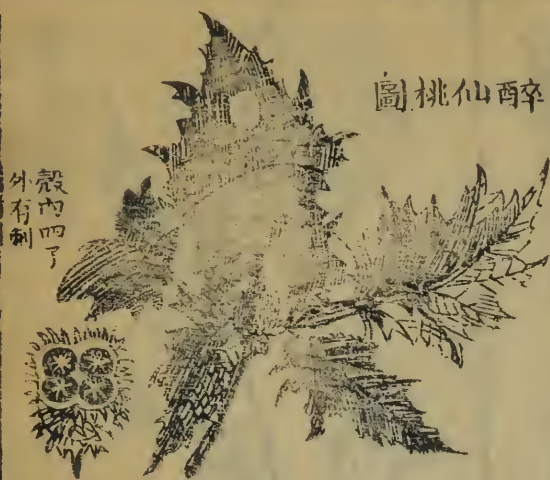 醉仙桃圖
殼内四子
外有刺